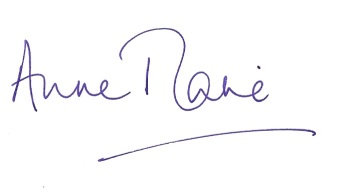 Anne Marie